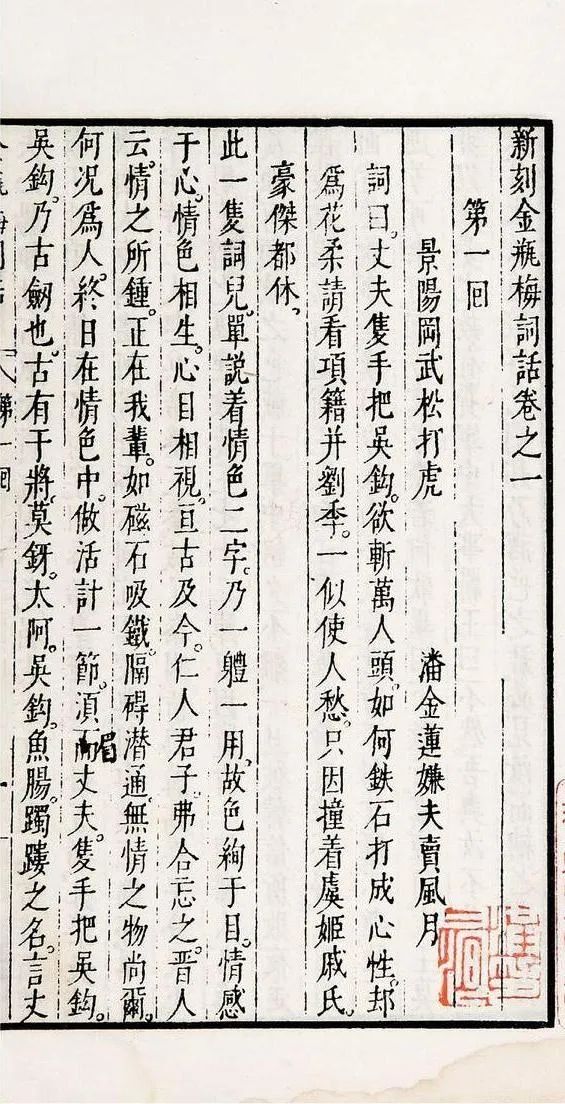 新刻金瓶梅詞話卷之一
第一回
景陽岡武松打虎　潘金蓮嫌夫賣風月
詞曰。丈夫隻手把吳鈎。欲斬萬人頭。如何鉄石打成心性。却
爲花柔。請看項籍并劉季。一似使人愁。只因撞着虞姬戚氏。
豪傑都休。
此一隻詞兒。單説着情色二字。乃一體一用。故色絢于目。情感
于心。情色相生。心目相視。亘古及今。仁人君子。弗合忘之。晋人
云。情之所鍾。正在我輩。如磁石吸鐵。隔碍潜通。無情之物尚爾。
何况爲人。終日在情色中。做活計一節。須而丈夫。隻手把吳鈎。
吳鈎。乃古劒也。古有干將。莫釾。太阿。吳鈎。魚腸。躅䠱之名。言丈
第一回